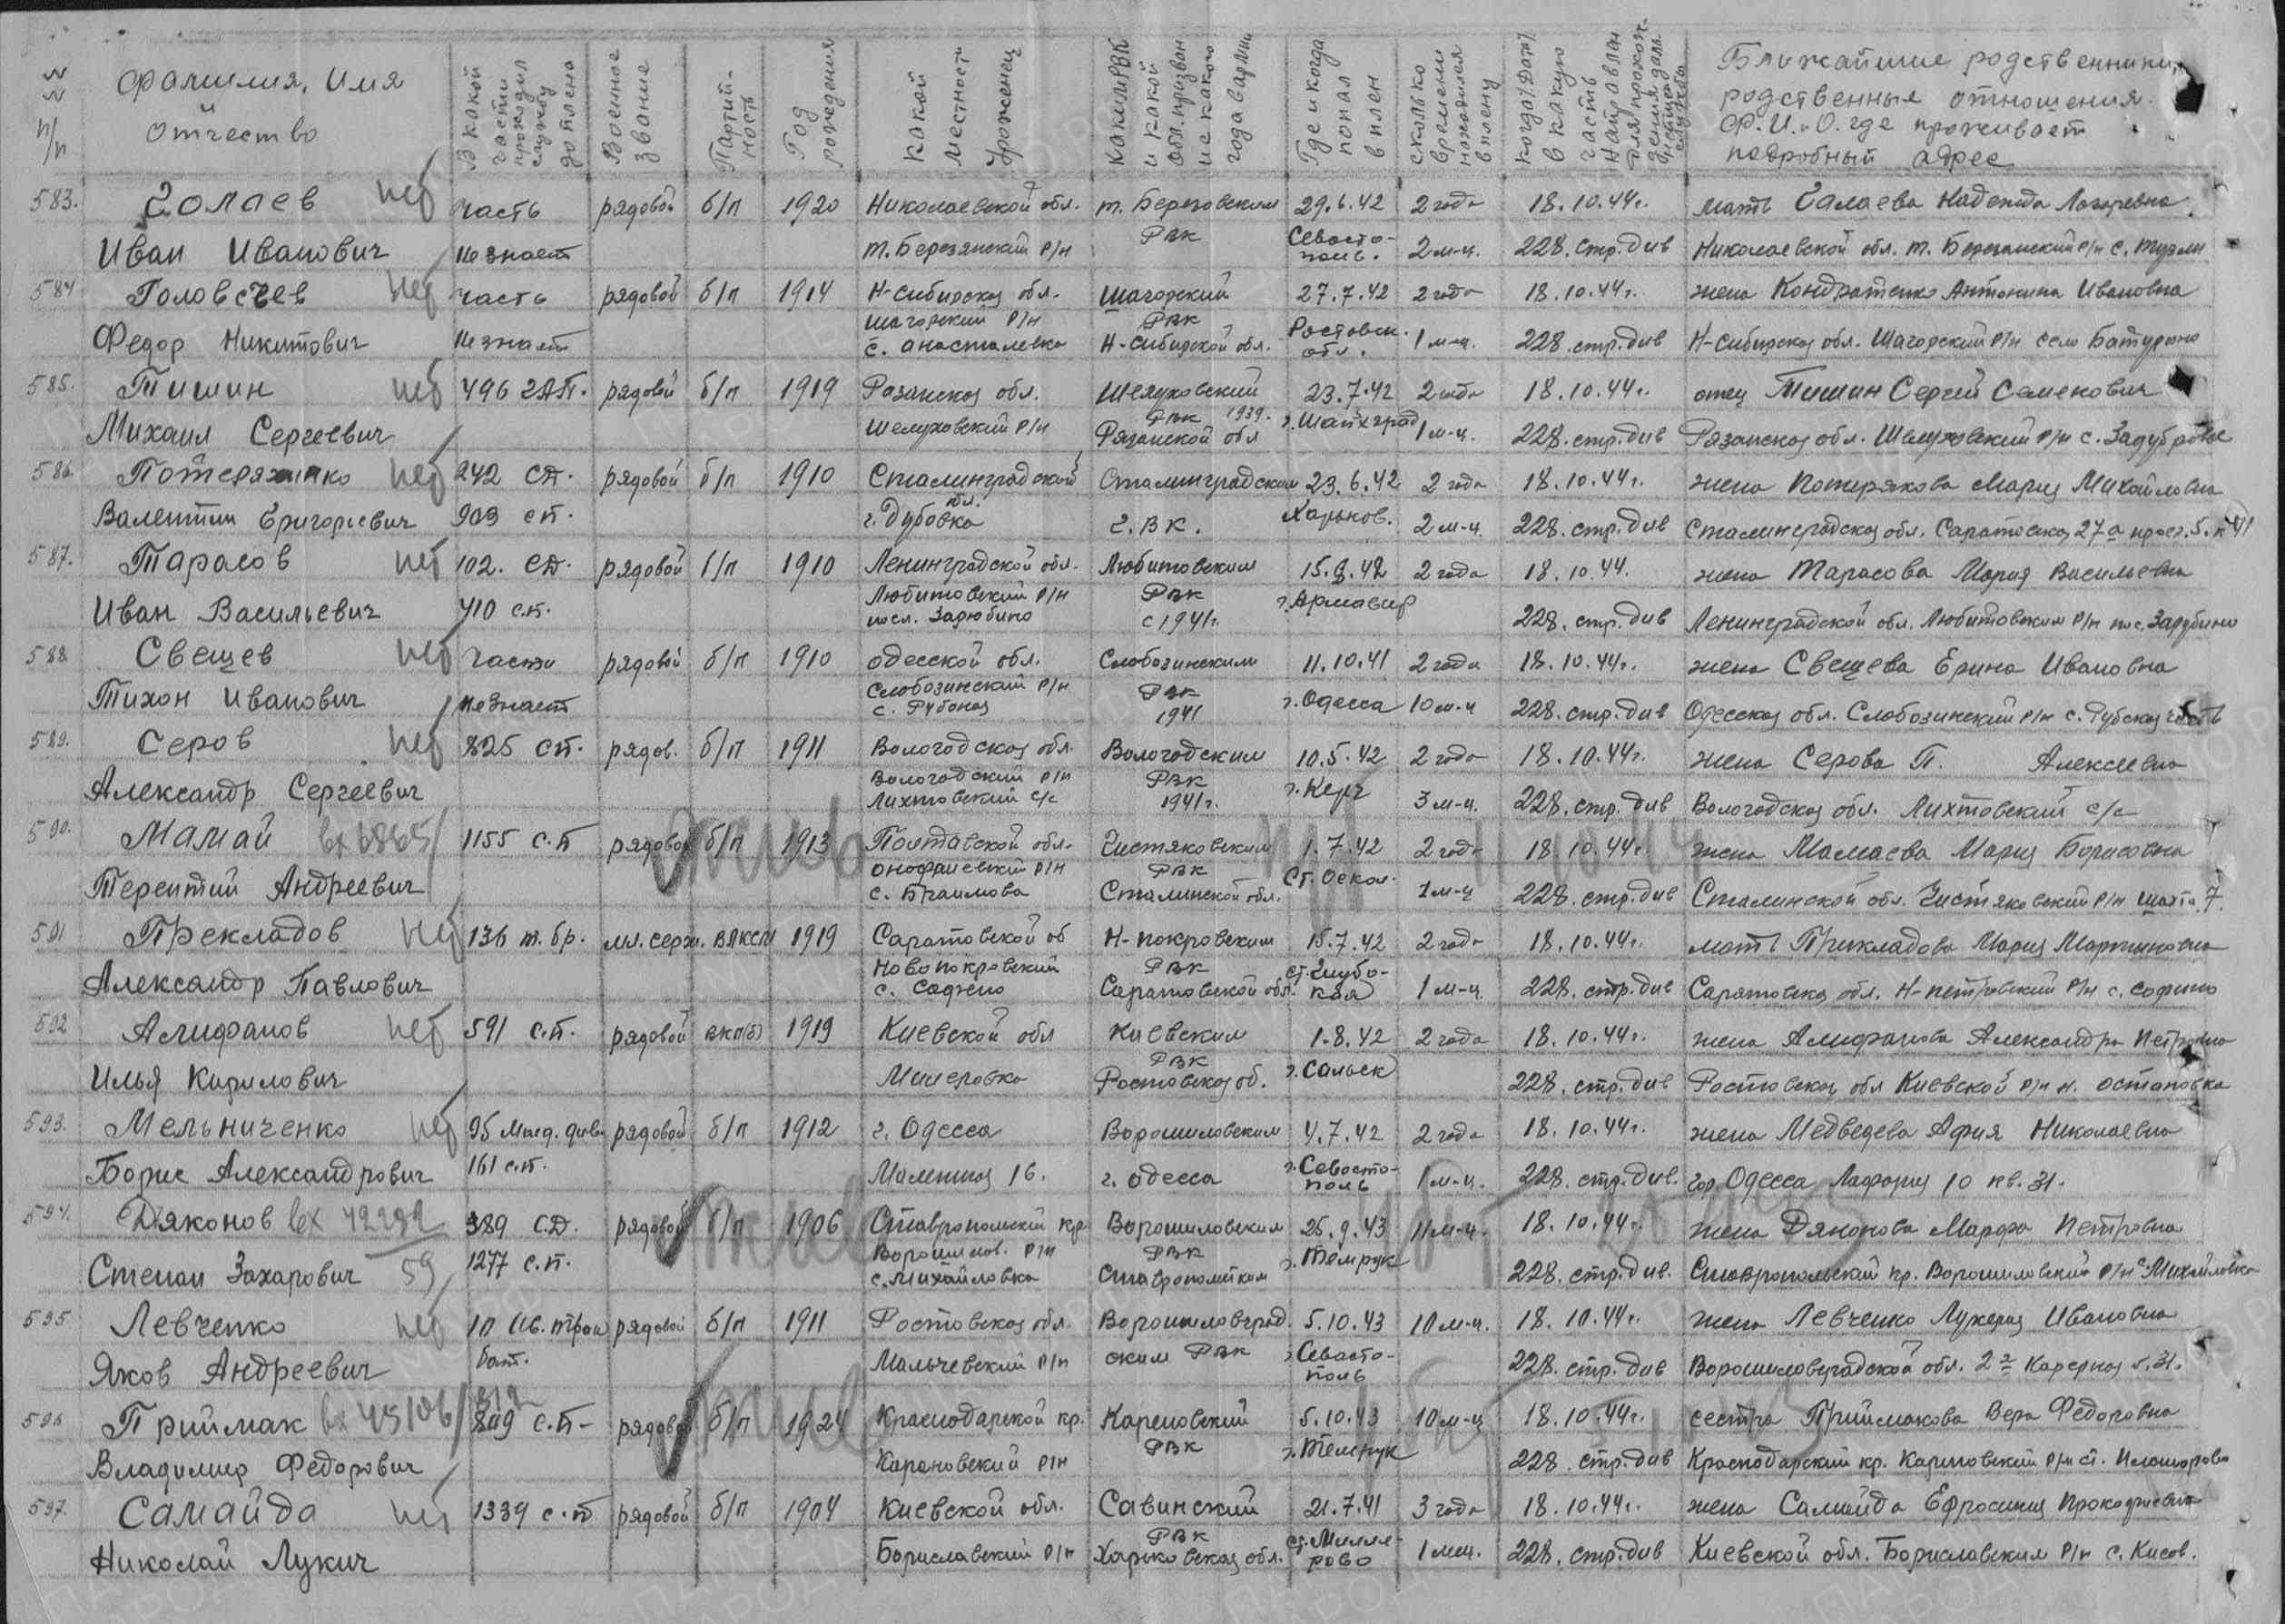 №№ п/п
Фамилия, Имя и Отчество
В какой части проходил службу до плена
Военное звание
Партийность
Год рождения
Какой местности уроженец
Каким РВК и какой обл. призван и с какого года в армии
Где и когда попал в плен
Сколько времени находился в плену
Когда /дата/ в какую часть направлен для прохождения дальнейшей службы
Ближайшие родственники, родственные отношения Ф.И.О. где проживает подробный адрес
583. Солаев нет часть рядовой б/п 1920 Николаевской обл. т. Березовским 29.6.42 2 года 18.10.44г. мать Салаева Надежда Лазаревна
Иван Иванович не знает т. Березянский р/н РВК Севастополь. 2 м-ц. 228. стр. див Николаевской обл. т. Березанский р/н с.
584 Головсчев нет часть рядовой б/п 1914 Н-Сибирская обл. Шагорский 27.7.42 2 года 18.10.44г. жена Кондратенко Антонина Ивановна
Федор Никитович не знает Шагорский р/н с. Анасталевка РВК Н-Сибирской обл. Ростовск. обл. 1 м-ц. 228. стр. див Н-Сибирская обл. Шагорский р/н село Батурино
585. Тишин нет 496 ГАП. рядовой б/п 1919 Рязанская обл. Шелуховский 23.7.42 2 года 18.10.44г. отец Тишин Сергей Семенович
Михаил Сергеевич Шелуховский р/н РВК 1939. Рязанской обл г. 1 м-ц. 228. стр. див Рязанская обл. Шелуховский р/н с. Задубровье
586. нет 242 СД. рядовой б/п 1910 Сталинградской Сталинградским 23.6.42 2 года 18.10.44г. жена Потерякова Мария Михайловна
Валентин Григорьевич 903 сп. обл. г. Дубовка Г.В.К. Харьков. 2 м-ц. 228. стр. див Сталинградская обл. Саратовская 27а
587. Тарасов нет 102. СД. рядовой б/п 1910 Ленинградской обл. Любитовским 15.8.42 2 года 18.10.44. жена Тарасова Мария Васильевна
Иван Васильевич 410 с.п. Любитовский р/н посл. Зарюбино РВК с 1941г. г. Армавир 228. стр. див Ленинградской обл. Любитовским р/н пос. Зарубино
588 Свещев нет части рядовой б/п 1910 Одесской обл. Слобозинским 11.10.41 2 года 18.10.44г. жена Свещева Ерина Ивановна
Тихон Иванович не знает Слобозинский р/н с. РВК 1941 г. Одесса 10 м-ц 228. стр. див Одесская обл. Слобозинский р/н с.
589. Серов нет 825 сп. рядов. б/п 1911 Вологодская обл. Вологодским 10.5.42 2 года 18.10.44г. жена Серова П. Алексеевна
Александр Сергеевич Вологодский р/н Лихтовский с/с РВК 1941г. г. Керч 3 м-ц. 228. стр. див Вологодская обл. Лихтовский с/с
590. Мамай 1155 с.п рядовой б/п 1913 Полтавской обл. Чистяковским 1.7.42 2 года 18.10.44г. жена Мамаева Мария Борисовна
Терентий Андреевич р/н с. Браилова РВК Сталинской обл. Ст. Оскол. 1 м-ц 228. стр. див Сталинской обл. Чистяковский р/н шахта 7.
591 Прекладов нет 136 т. бр. мл. серж. ВЛКСМ 1919 Саратовской об Н-покровским 15.7.42 2 года 18.10.44г. мать Прикладова Мария Мартиновна
Александр Павлович Новопокровский с. РВК Саратовской обл. ст. Глубокая 1 м-ц 228. стр. див Саратовская обл. Н-петровский р/н с. Софино
592 Алифанов нет 591 с.п. рядовой ВКП(б) 1919 Киевской обл Киевским 1.8.42 2 года 18.10.44г. жена Алифанова Александра Петровна
Илья Кирилович РВК Ростовская об. г. Сальск 228. стр. див Ростовская обл Киевской р/н н. остановка
593. Мельниченко нет 95 Молд. див. рядовой б/п 1912 г. Одесса Ворошиловским 4.7.42 2 года 18.10.44г. жена Медведева Афия Николаевна
Борис Александрович 161 с.п. 16. г. Одесса г. Севастополь 1 м-ц. 228. стр. див. гор Одесса 10 кв. 31.
594. Дяконов вх 42282 389 СД. рядовой б/п 1906 Ставропольский кр Ворошиловским 25.9.43 11 м-ц. 18.10.44г. жена Дяконова Марфа Петровна
Степан Захарович 59 1277 с.п. Ворошилов. р/н с. Михайловка РВК Ставрополиким г. Темрук 228. стр. див. Ставропольский кр. Ворошиловский р/н с. Михайловка
595 Левченко нет рядовой б/п 1911 Ростовская обл. Ворошиловград 5.10.43 10 м-ц. 18.10.44г. жена Левченко Лукерия Ивановна
Яков Андреевич бат. Мальчевский р/н ским РВК г. Севастополь 228. стр. див Ворошиловградской обл. 2я Карерная 31.
596 Приймак вх 45106 849 с.п- рядовой б/п 1924 Краснодарской кр. Кареновский 5.10.43 10 м-ц 18.10.44г. сестра Приймакова Вера Федоровна
Владимир Федорович Кареновский р/н РВК г. Темрук 228. стр. див Краснодарский кр. Кариновский р/н ст.
597. Самайда нет 1339 с.п рядовой б/п 1904 Киевской обл. Савинский 21.7.41 3 года 18.10.44г. жена Самайда Ефросиния Прокофиевна
Николай Лукич Бориславский р/н РВК Харьковская обл. ст. Миллерово 1 мец. 228. стр. див Киевской обл. Бориславским р/н с. Кисов.